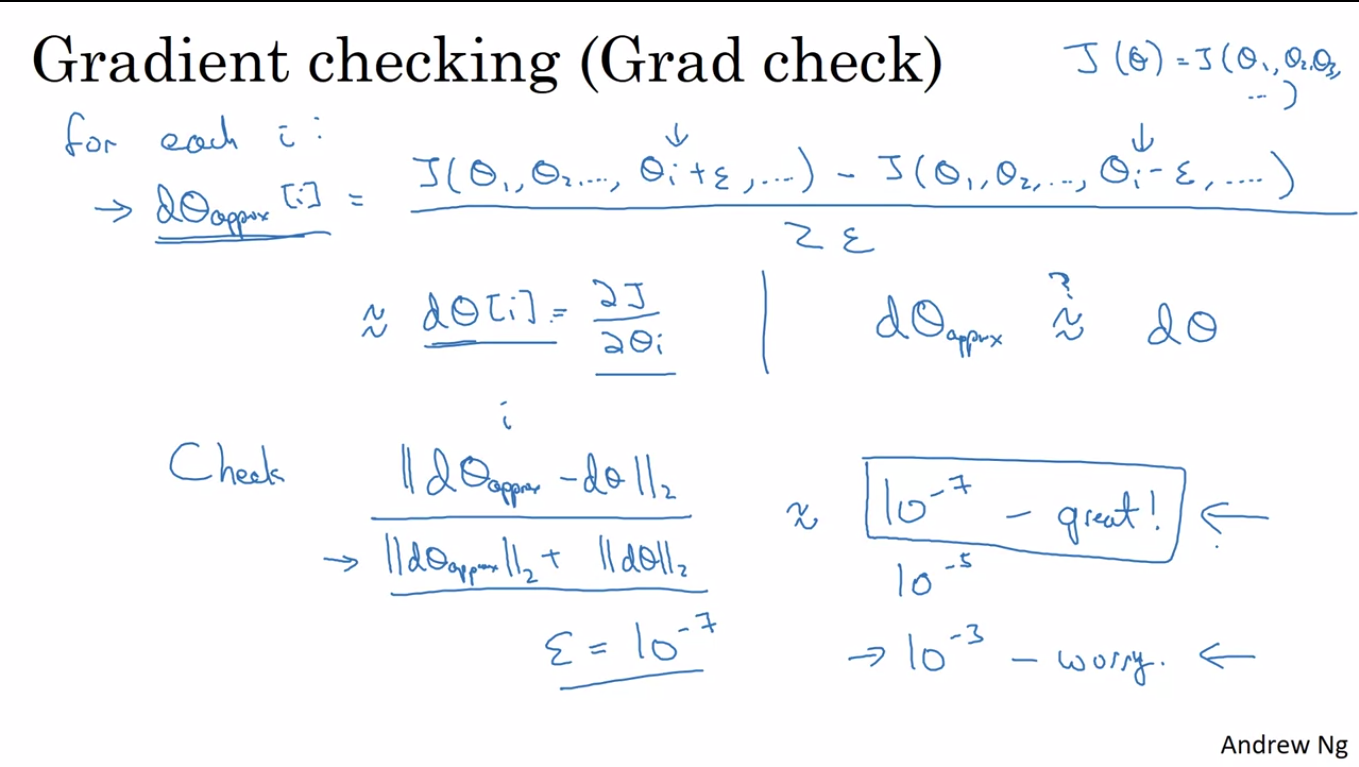 Gradient checking (Grad check)
J(θ) = J(θ₁, θ₂, θ₃,
...)
for each i:
↓ ↓
→ dθapprox[i] = J(θ₁, θ₂, ..., θᵢ+ε, ...) - J(θ₁, θ₂, ..., θᵢ-ε, ....)
2ε
≈ dθ[i] = ∂J/∂θᵢ | dθapprox ≈? dθ
i
Check ||dθapprox - dθ||₂ ≈ 10⁻⁷ - great! ←
→ ||dθapprox||₂ + ||dθ||₂
10⁻⁵
ε = 10⁻⁷ → 10⁻³ - worry. ←
Andrew Ng